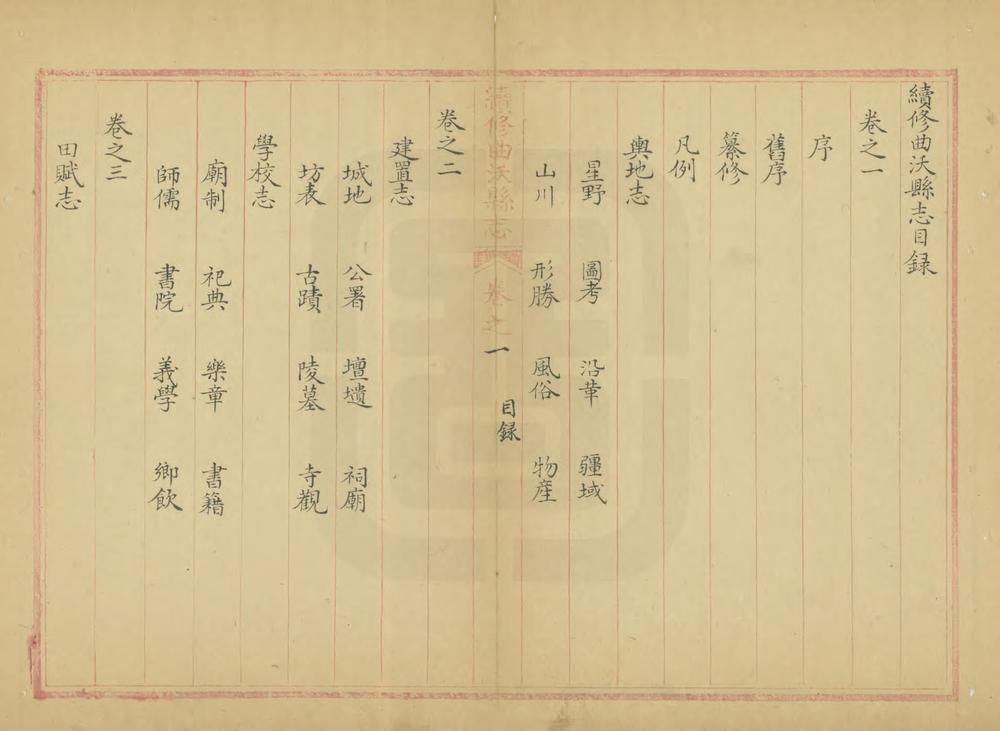 續修曲沃縣志目録
卷之一
序
舊序
纂修
凡例
輿地志
星野 圖考 沿革 疆域
山川 形勝 風俗 物産
續修曲沃縣志 卷之一 目録
卷之二
建置志
城地 公署 壇壝 祠廟
坊表 古蹟 陵墓 寺觀
學校志
廟制 祀典 樂章 書籍
師儒 書院 義學 鄉飲
卷之三
田賦志